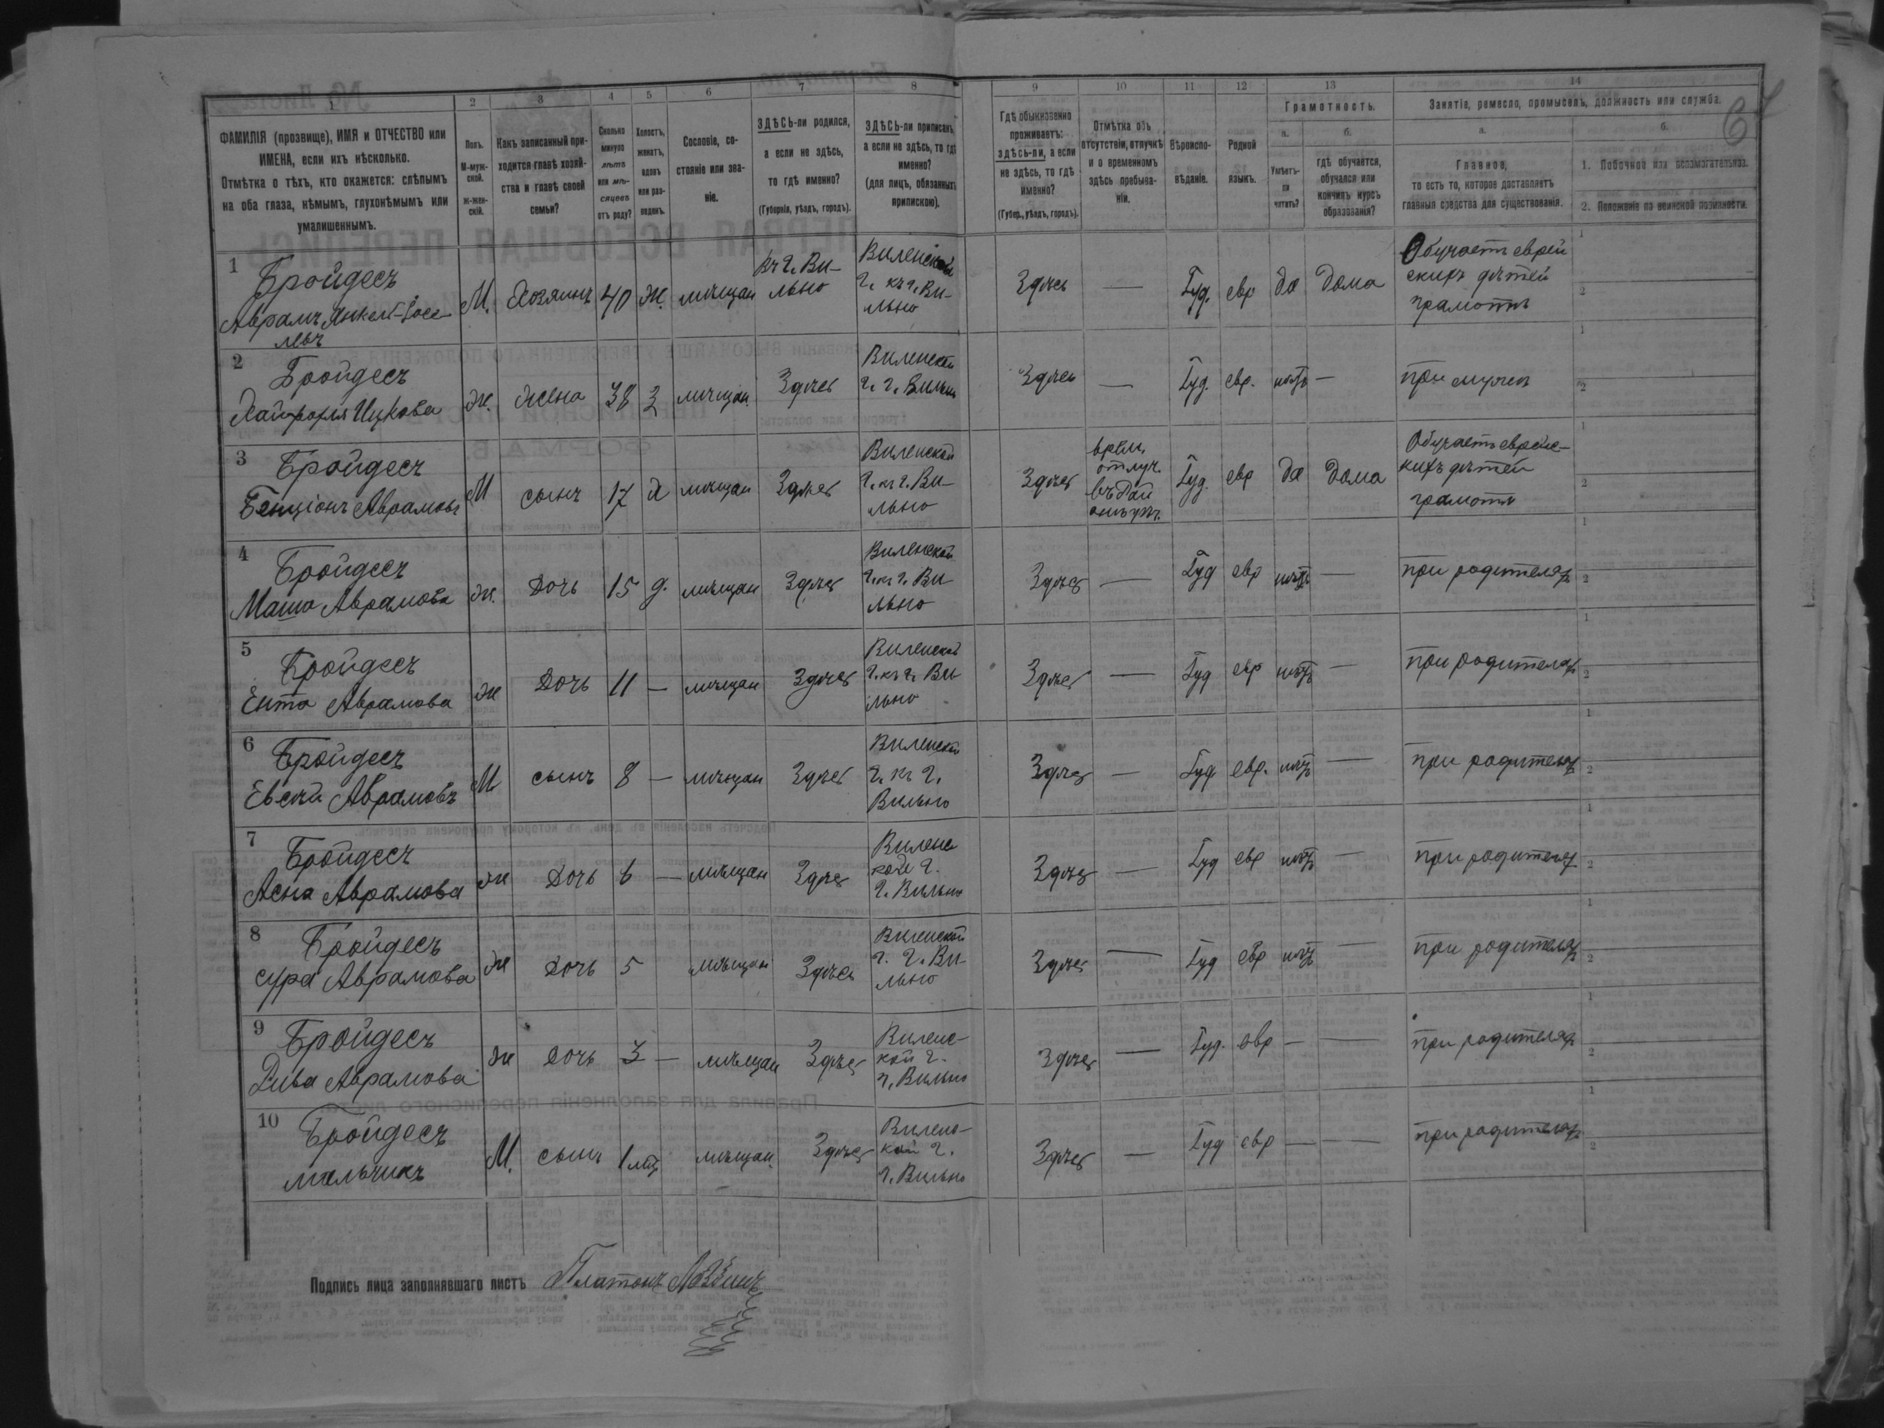 1 2 3 4 5 6 7 8 9 10 11 12 13 14
ФАМИЛІЯ (прозвище), ИМЯ и ОТЧЕСТВО или
ИМЕНА, если ихъ нѣсколько.
Отмѣтка о тѣхъ, кто окажется: слѣпымъ
на оба глаза, нѣмымъ, глухонѣмымъ или
умалишеннымъ.
Полъ.
М-муж-
ской.
Ж-жен-
скій.
Какъ записанный при-
ходится главѣ хозяй-
ства и главѣ своей
семьи?
Сколько
минуло
лѣтъ
или мѣ-
сяцевъ
отъ роду?
Холостъ,
женатъ,
вдовъ
или раз-
веденъ.
Сословіе, со-
стояніе или зва-
ніе.
ЗДѢСЬ-ли родился,
а если не здѣсь,
то гдѣ именно?
(Губернія, уѣздъ, городъ).
ЗДѢСЬ-ли приписанъ,
а если не здѣсь, то гдѣ
именно?
(для лицъ, обязанныхъ
припискою).
Гдѣ обыкновенно
проживаетъ:
здѣсь-ли, а если
не здѣсь, то гдѣ
именно?
(Губер., уѣздъ, городъ).
Отмѣтка объ
отсутствіи, отлучкѣ
и о временномъ
здѣсь пребыва-
ніи.
Вѣроиспо-
вѣданіе.
Родной
языкъ.
Грамотность.
а.
Умѣетъ-
ли
читать?
б.
гдѣ обучается,
обучался или
кончилъ курсъ
образованія?
Занятіе, ремесло, промыселъ, должность или служба.
а.
Главное,
то есть то, которое доставляетъ
главныя средства для существованія.
б.
1. Побочное или вспомогательное.
2. Положеніе по воинской повинности.
67
1 Бройдесъ
Аврамъ Янкель-Іосе
левъ
М. Хозяинъ 40 Ж. мѣщан
въ г. Ви-
льно
Виленской
г. къ г. Ви-
льно
Здѣсь — Іуд. евр да дома
Обучаетъ еврей
скихъ дѣтей
грамотѣ
2 Бройдесъ
Ицкова
Ж. жена 38 З мѣщан. Здѣсь
Виленской
г. г. Вильно
Здѣсь — Іуд. евр. нѣтъ — при мужѣ
3 Бройдесъ
Бенціонъ Аврамовъ
М сынъ 17 Х мѣщан Здѣсь
Виленской
г. къ г. Ви-
льно
Здѣсь
врем.
отлуч.
Іуд. евр да дома
Обучаетъ еврейс-
кихъ дѣтей
грамотѣ
4 Бройдесъ
Маша Аврамова
Ж. Дочь 15 д. мѣщан Здѣсь
Виленской
г. къ г. Ви-
льно
Здѣсь — Іуд евр нѣтъ — при родителях
5 Бройдесъ
Ента Аврамова
Ж Дочь 11 — мѣщан Здѣсь
Виленской
г. къ г. Ви-
льно
Здѣсь — Іуд евр нѣтъ — при родителях
6 Бройдесъ
Евсей Аврамовъ
М сынъ 8 — мѣщан Здѣсь
Виленской
г. къ г.
Вильно
Здѣсь — Іуд евр. нѣтъ — при родителях
7 Бройдесъ
Асна Аврамова
Ж Дочь 6 — мѣщан Здѣсь
Виленс
кой г.
г. Вильно
Здѣсь — Іуд евр нѣтъ — при родителях
8 Бройдесъ
сура Аврамова
Ж Дочь 5 мѣщан Здѣсь
Виленской
г. г. Ви-
льно
Здѣсь — Іуд евр нѣтъ — при родителях
9 Бройдесъ
Аврамова
Ж дочь 3 — мѣщан Здѣсь
Виленс-
кой г.
г. Вильно
Здѣсь — Іуд. евр — — при родителях
10 Бройдесъ
мальчикъ
М. сынъ 1 мѣс мѣщан. Здѣсь
Виленс-
кой г.
г. Вильно
Здѣсь — Іуд евр — — при родителях
Подпись лица заполнявшаго листъ Платонъ